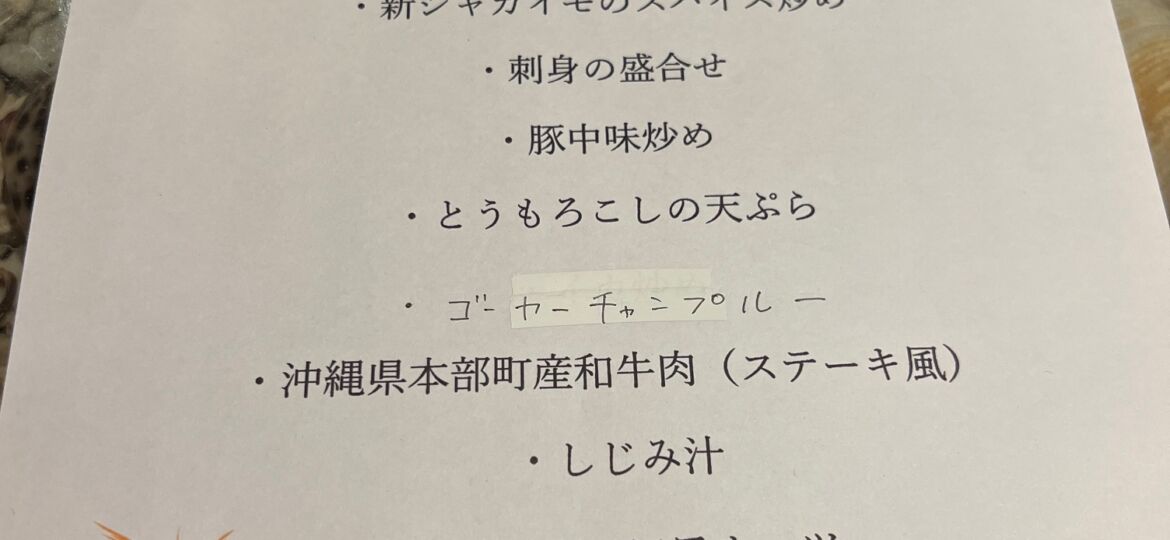 ・新ジャガイモのスパイス炒め
・刺身の盛合せ
・豚中味炒め
・とうもろこしの天ぷら
・ゴーヤーチャンプルー
・沖縄県本部町産和牛肉（ステーキ風）
・しじみ汁